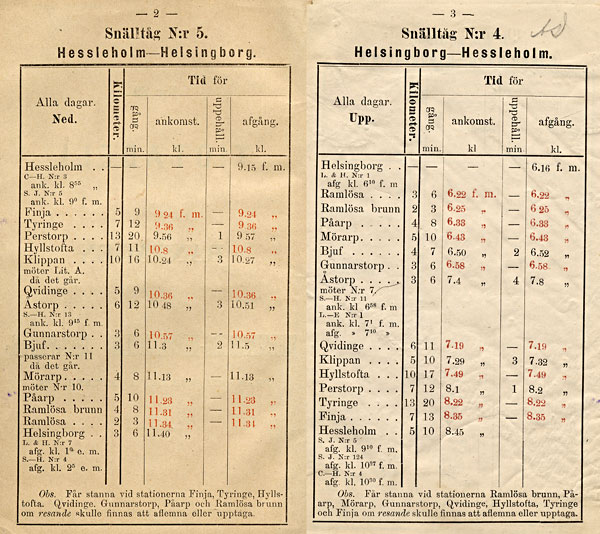 — 2 —
Snälltåg N:r 5.
Hessleholm—Helsingborg.
Alla dagar.
Ned.
Kilometer.
Tid för
gång. ankomst. uppehåll. afgång.
min. kl. min. kl.
Hessleholm . . — — — — 9.15 f. m.
C—H. N:r 3
ank. kl. 8⁵⁵ „
S. J. N:r 5
ank. kl. 9⁰ f. m.
Finja . . . . . . 5 9 9.24 f. m. — 9.24 „
Tyringe . . . . 7 12 9.36 „ — 9.36 „
Perstorp . . . . 13 20 9.56 „ 1 9.57 „
Hyllstofta . . . 7 11 10.8 „ — 10.8 „
Klippan . . . . . 10 16 10.24 „ 3 10.27 „
möter Lit. A.
då det går.
Qvidinge . . . . 5 9 10.36 „ — 10.36 „
Åstorp . . . . . 6 12 10 48 „ 3 10.51 „
S.—H. N:r 13
ank. kl. 9⁴⁵ f. m.
Gunnarstorp . . 3 6 10.57 „ — 10.57 „
Bjuf. . . . . . . 3 6 11.3 „ 2 11.5 „
passerar N:r 11
då det går.
Mörarp . . . . . 4 8 11.13 „ — 11.13 „
möter N:r 10.
Påarp . . . . . . 5 10 11.23 „ — 11.23 „
Ramlösa brunn 4 8 11.31 „ — 11.31 „
Ramlösa . . . . 2 3 11.34 „ — 11.34 „
Helsingborg . . 3 6 11.40 „
L. & H. N:r 7
afg. kl. e. m.
S.—H. N:r 4
afg. kl. e. m.
Obs. Får stanna vid stationerna Finja, Tyringe, Hylls-
tofta. Qvidinge. Gunnarstorp, Påarp och Ramlösa brunn
om resande skulle finnas att aflemna eller upptaga.
— 3 —
Snälltåg N:r 4.
Helsingborg—Hessleholm.
Alla dagar.
Upp.
Kilometer.
Tid för
gång. ankomst. uppehåll. afgång.
min. kl. min. kl.
Helsingborg . . — — — — 6.16 f. m.
L. & H. N:r 1
afg kl. 6¹⁰ f. m
Ramlösa. . . . . 3 6 6.22 f. m. — 6.22 „
Ramlösa brunn 2 3 6.25 „ — 6 25 „
Påarp . . . . . . 4 8 6.33 „ — 6.33 „
Mörarp. . . . . . 5 10 6.43 „ — 6.43 „
Bjuf . . . . . . . 4 7 6.50 „ 2 6.52 „
Gunnarstorp . . 3 6 6.58 „ — 6.58 „
Åstorp . . . . . . 3 6 7.4 „ 4 7.8 „
möter N:r 7
S.—H. N:r 11
ank. kl. 6⁵⁸ f. m.
L.—E N:r 1
ank. kl. 7¹ f. m.
afg. » 7¹⁰ »
Qvidinge . . . . 6 11 7.19 „ — 7.19 „
Klippan . . . . . 5 10 7.29 „ 3 7.32 „
Hyllstofta . . . . 10 17 7.49 „ — 7.49 „
Perstorp . . . . 7 12 8.1 „ 1 8.2 „
Tyringe . . . . . 13 20 8.22 „ — 8.22 „
Finja . . . . . . . 7 13 8.35 „ — 8.35 „
Hessleholm . . 5 10 8.45 „
S. J. N:r 5
afg. kl. 9¹⁰ f. m.
S. J. N:r 124
afg. kl. 10⁵⁷ f. m.
C.—H. N:r 4
afg. kl. 10¹⁰ f. m.
Obs. Får stanna vid stationerna Ramlösa brunn, På-
arp, Mörarp, Gunnarstorp, Qvidinge, Hyllstofta, Tyringe
och Finja om resande skulle finnas att aflemna eller upptaga.